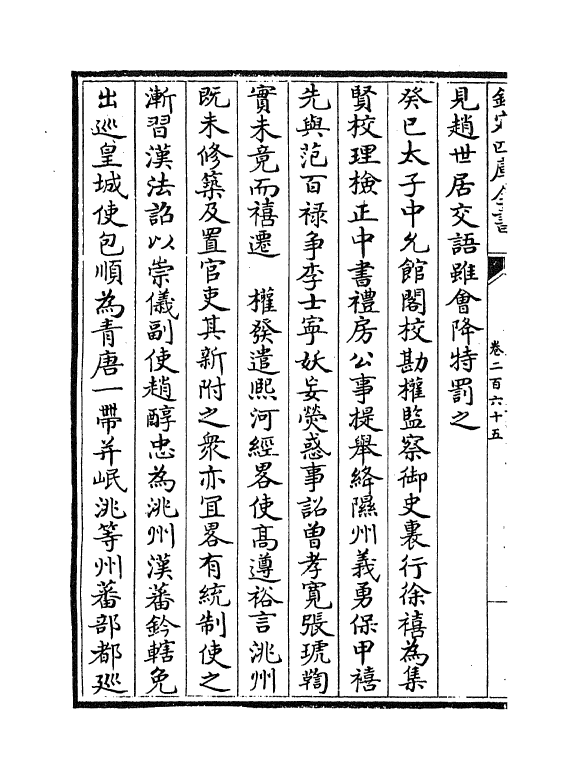 欽定四庫全書
卷二百六十五
見趙世居交語雖會降特罰之
癸巳太子中允館閣校勘權監察御史裏行徐禧為集
賢校理檢正中書禮房公事提舉絳隰州義勇保甲禧
先與范百禄争李士寧妖妄熒惑事詔曾孝寛張琥鞫
實未竟而禧遷　權發遣熙河經畧使髙遵裕言洮州
既未修築及置官吏其新附之衆亦冝畧有統制使之
漸習漢法詔以崇儀副使趙醇忠為洮州漢蕃鈐轄免
出廵皇城使包順為青唐一帶并岷洮等州蕃部都廵